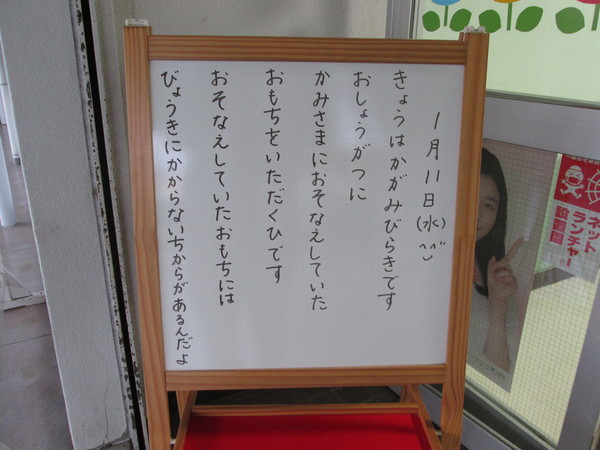 1月11日(水)^^
きょうはかがみびらきです
おしょうがつに
かみさまにおそなえしていた
おもちをいただくひです
おそなえしていたおもちには
びょうきにかからないちからがあるんだよ
ネット
ランチャー
設置園